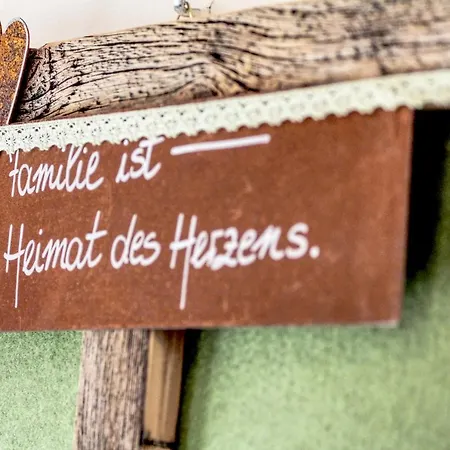 Familie ist —
Heimat des Herzens.